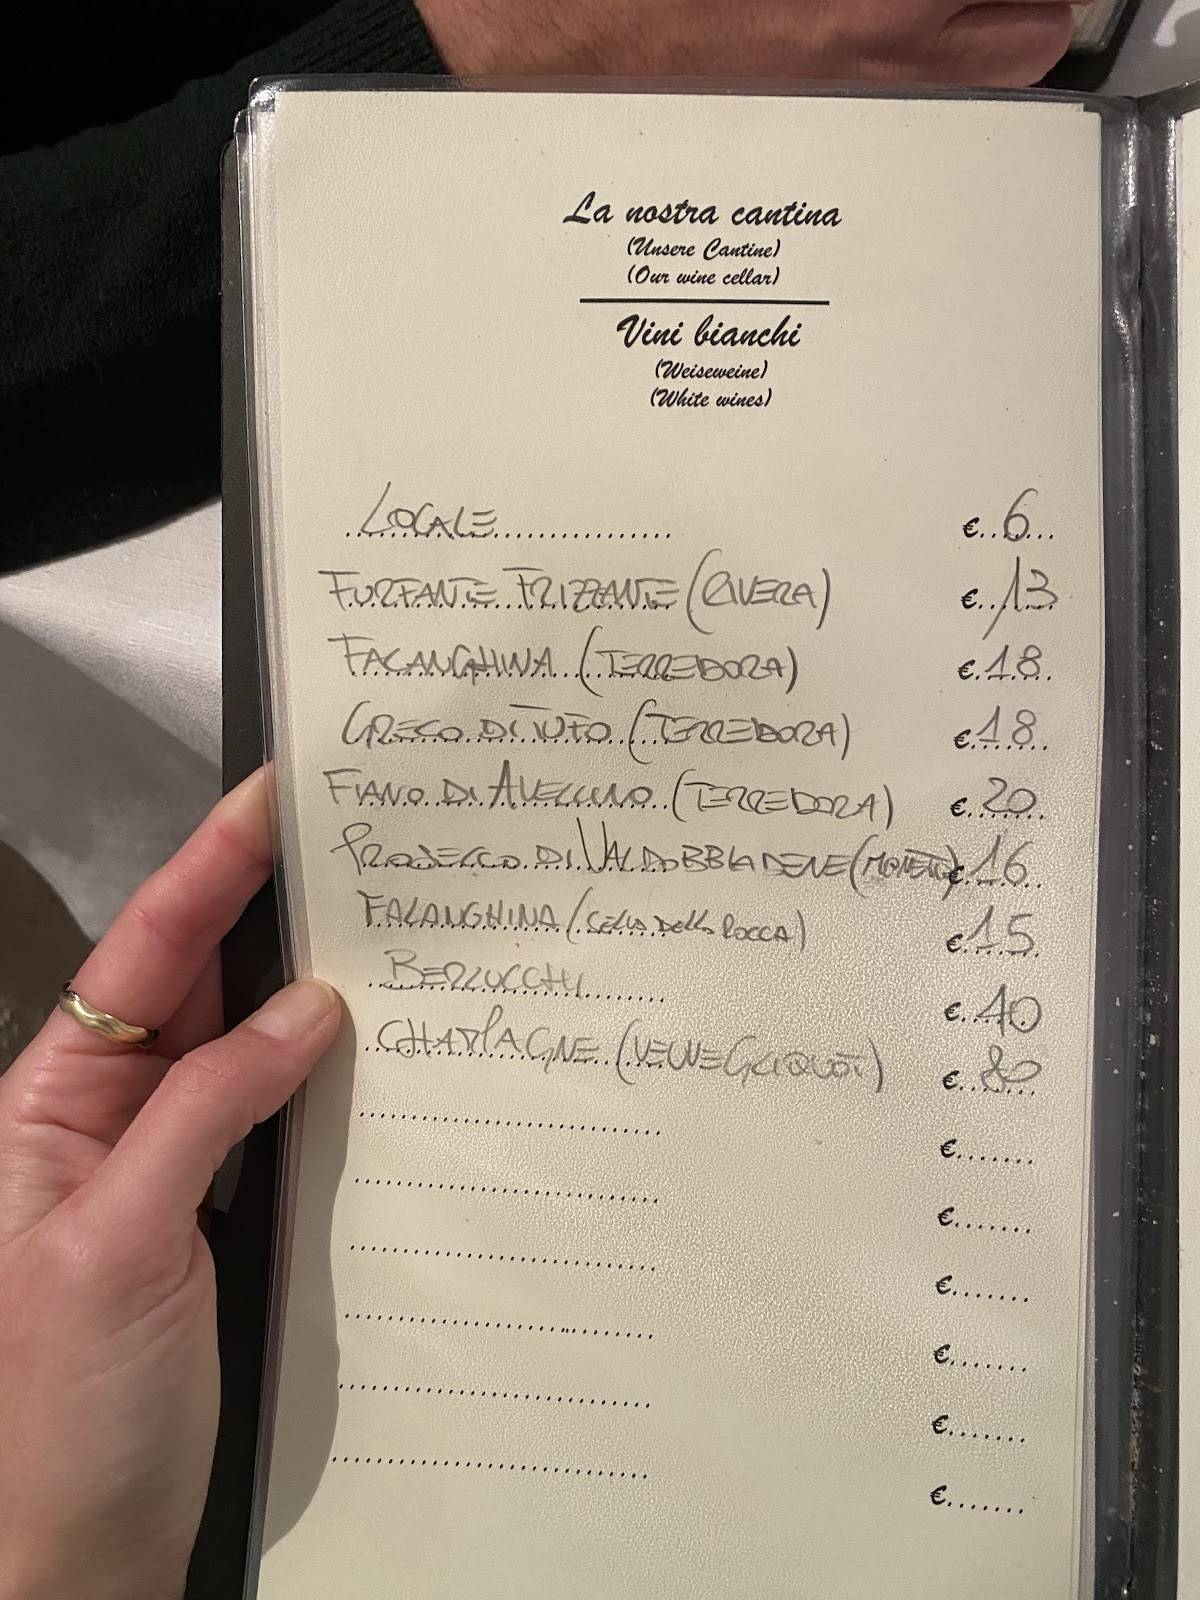 La nostra cantina
(Unsere Cantine)
(Our wine cellar)
Vini bianchi
(Weiseweine)
(White wines)
LOCALE € 6
FURFANTE FRIZZANTE (RIVERA) € 13
FALANGHINA (TERREDORA) € 18
GRECO DI TUFO (TERREDORA) € 18
FIANO DI AVELLINO (TERREDORA) € 20
PROSECCO DI VALDOBBIADENE (MONETO) € 16
FALANGHINA (SELLA DELLA ROCCA) € 15
BERLUCCHI € 40
CHAMPAGNE (VEUVE CLIQUOT) € 80
€
€
€
€
€
€